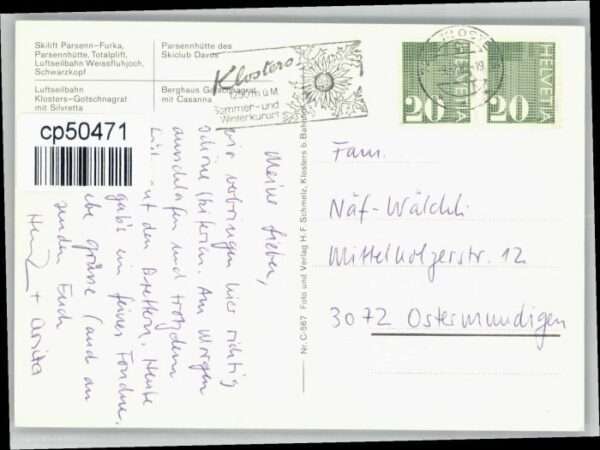 Skilift Parsenn-Furka,
Parsennhütte, Totalplift,
Luftseilbahn Weissfluhjoch,
Schwarzkopf
Parsennhütte des
Skiclub Davos
Luftseilbahn
Klosters-Gotschnagrat
mit Silvretta
Berghaus Gotschnagrat
mit Casanna
cp50471
Klosters
1250 m ü M
Sommer- und
Winterkurort
HELVETIA
20
HELVETIA
20
Meine Lieben,
wir verbringen hier richtig
schöne Skiferien. Am Morgen
ausschlafen und trotzdem
auf den Brettern. Heute
gab's ein feines Fondue.
Liebe Grüsse (auch an
senden Euch
+ Anita
Nr. C-567 Foto und Verlag H.F. Schmelz, Klosters b. Bahnhof
Fam.
Näf-Wälchli
Mittelholzerstr. 12
3072 Ostermundigen